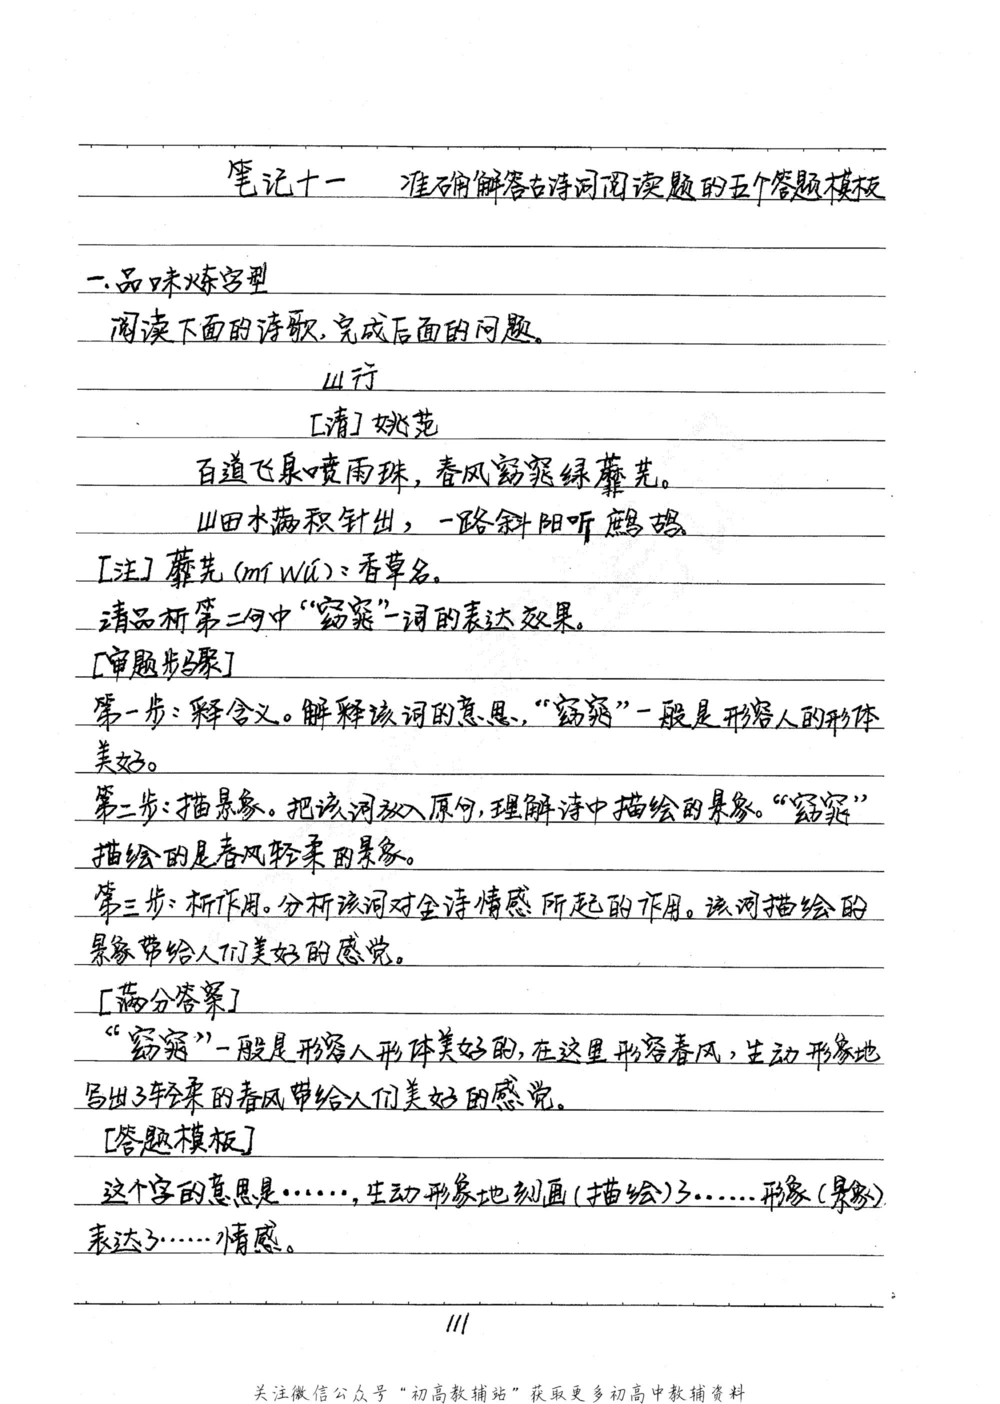 笔记十一 准确解答古诗词阅读题的五个答题模板
一.品味炼字型
阅读下面的诗歌,完成后面的问题。
山行
[清]姚范
百道飞泉喷雨珠,春风窈窕绿蘼芜。
山田水满秧针出,一路斜阳听鹧鸪。
[注]蘼芜(mí wú):香草名。
请品析第二句中“窈窕”一词的表达效果。
[审题步骤]
第一步:释含义。解释该词的意思,“窈窕”一般是形容人的形体
美好。
第二步:描景象。把该词放入原句,理解诗中描绘的景象。“窈窕”
描绘的是春风轻柔的景象。
第三步:析作用。分析该词对全诗情感所起的作用。该词描绘的
景象带给人们美好的感觉。
[满分答案]
“窈窕”一般是形容人形体美好的,在这里形容春风,生动形象地
写出了轻柔的春风带给人们美好的感觉。
[答题模板]
这个字的意思是……,生动形象地刻画(描绘)了……形象(景象)
表达了……情感。
111
关注微信公众号“初高教辅站”获取更多初高中教辅资料